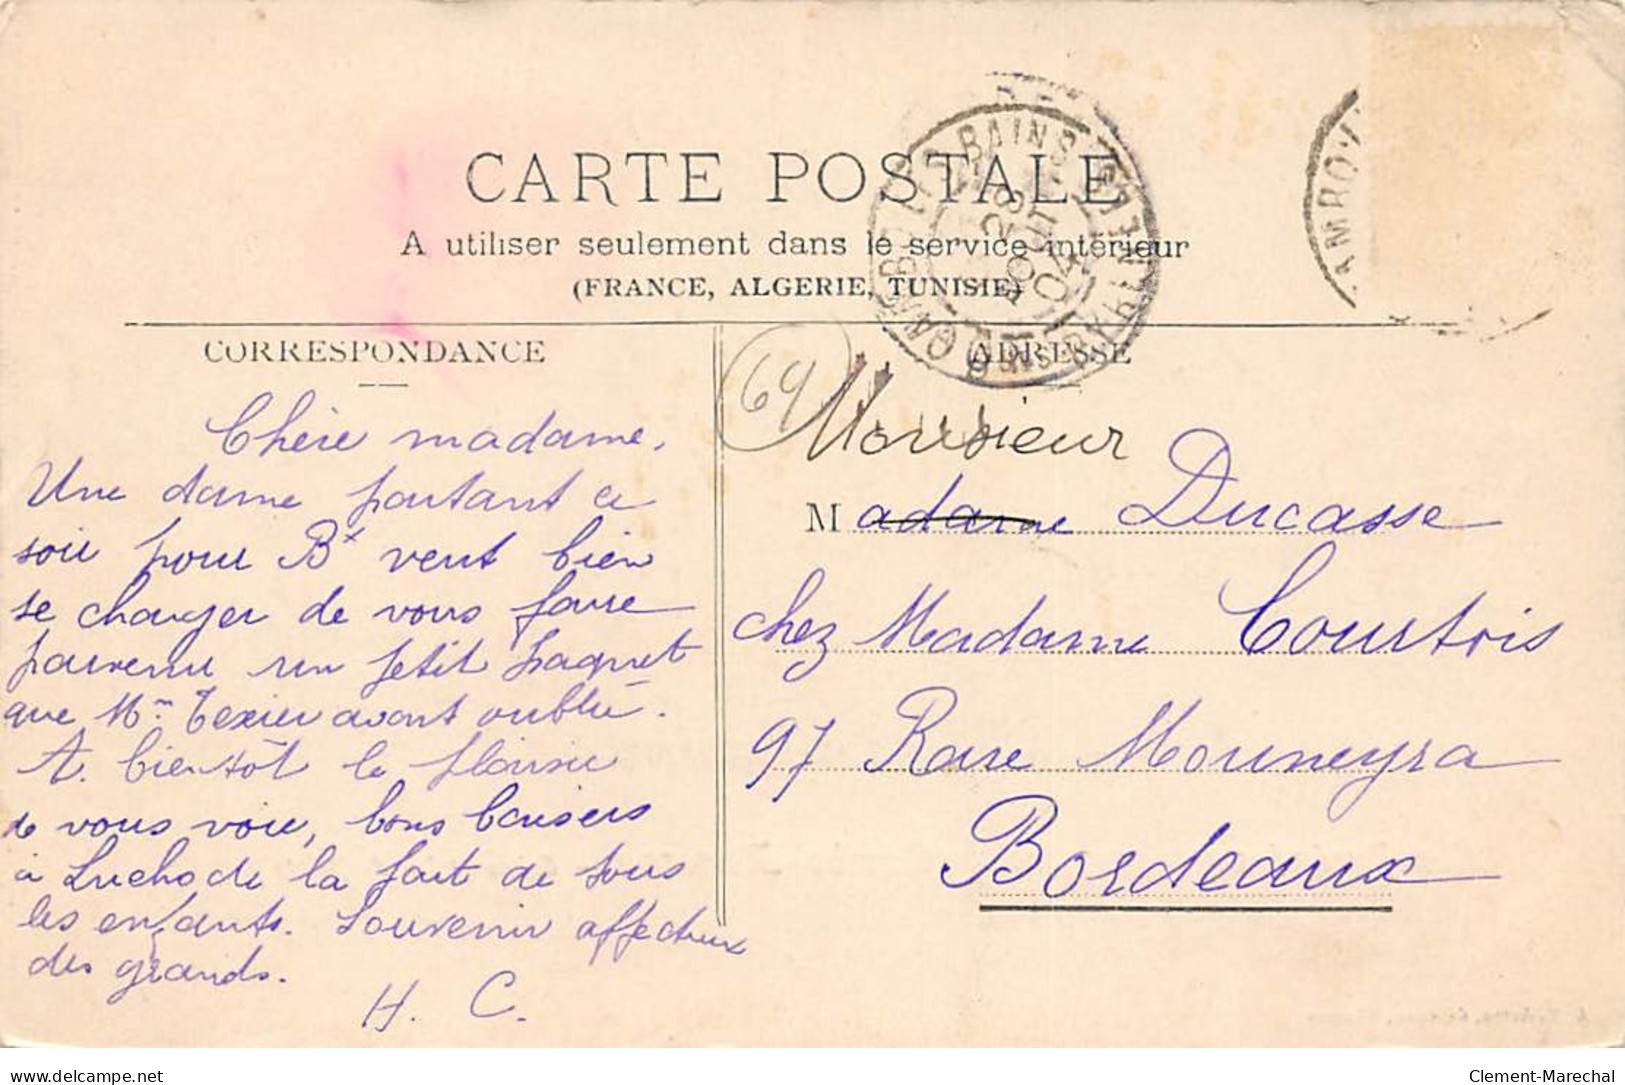 CARTE POSTALE
A utiliser seulement dans le service intérieur
(FRANCE, ALGERIE, TUNISIE)
CORRESPONDANCE
Chère madame,
Une dame partant ce
soir pour Bx veut bien
se charger de vous faire
parvenir un petit paquet
que Mm Texier avait oublié.
A bientôt le plaisir
de vous voir, bons baisers
à de la part de tous
les enfants. Souvenir affectueux
des grands.
H. C.
64
ADRESSE
CAMBO LES BAINS
28
AOUT
04
CAMBO
Monsieur
Madame Ducasse
chez Madame Courtois
97 Rue Mouneyra
Bordeaux
delcampe.net
Clement-Marechal